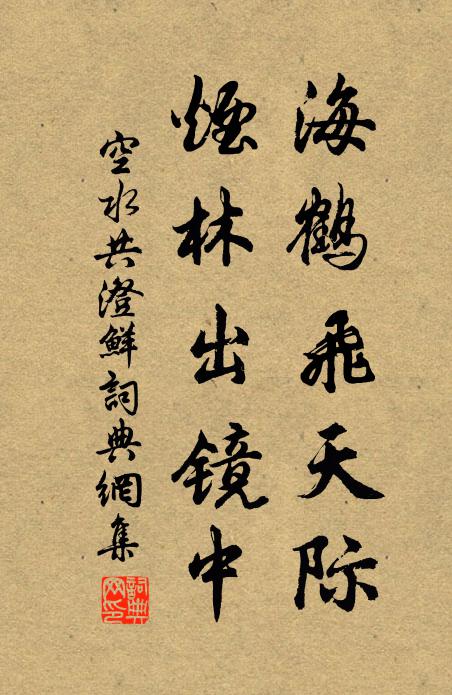 海鹤飞天际
烟林出镜中
空水共澄鮮詞典網集
詞典網印